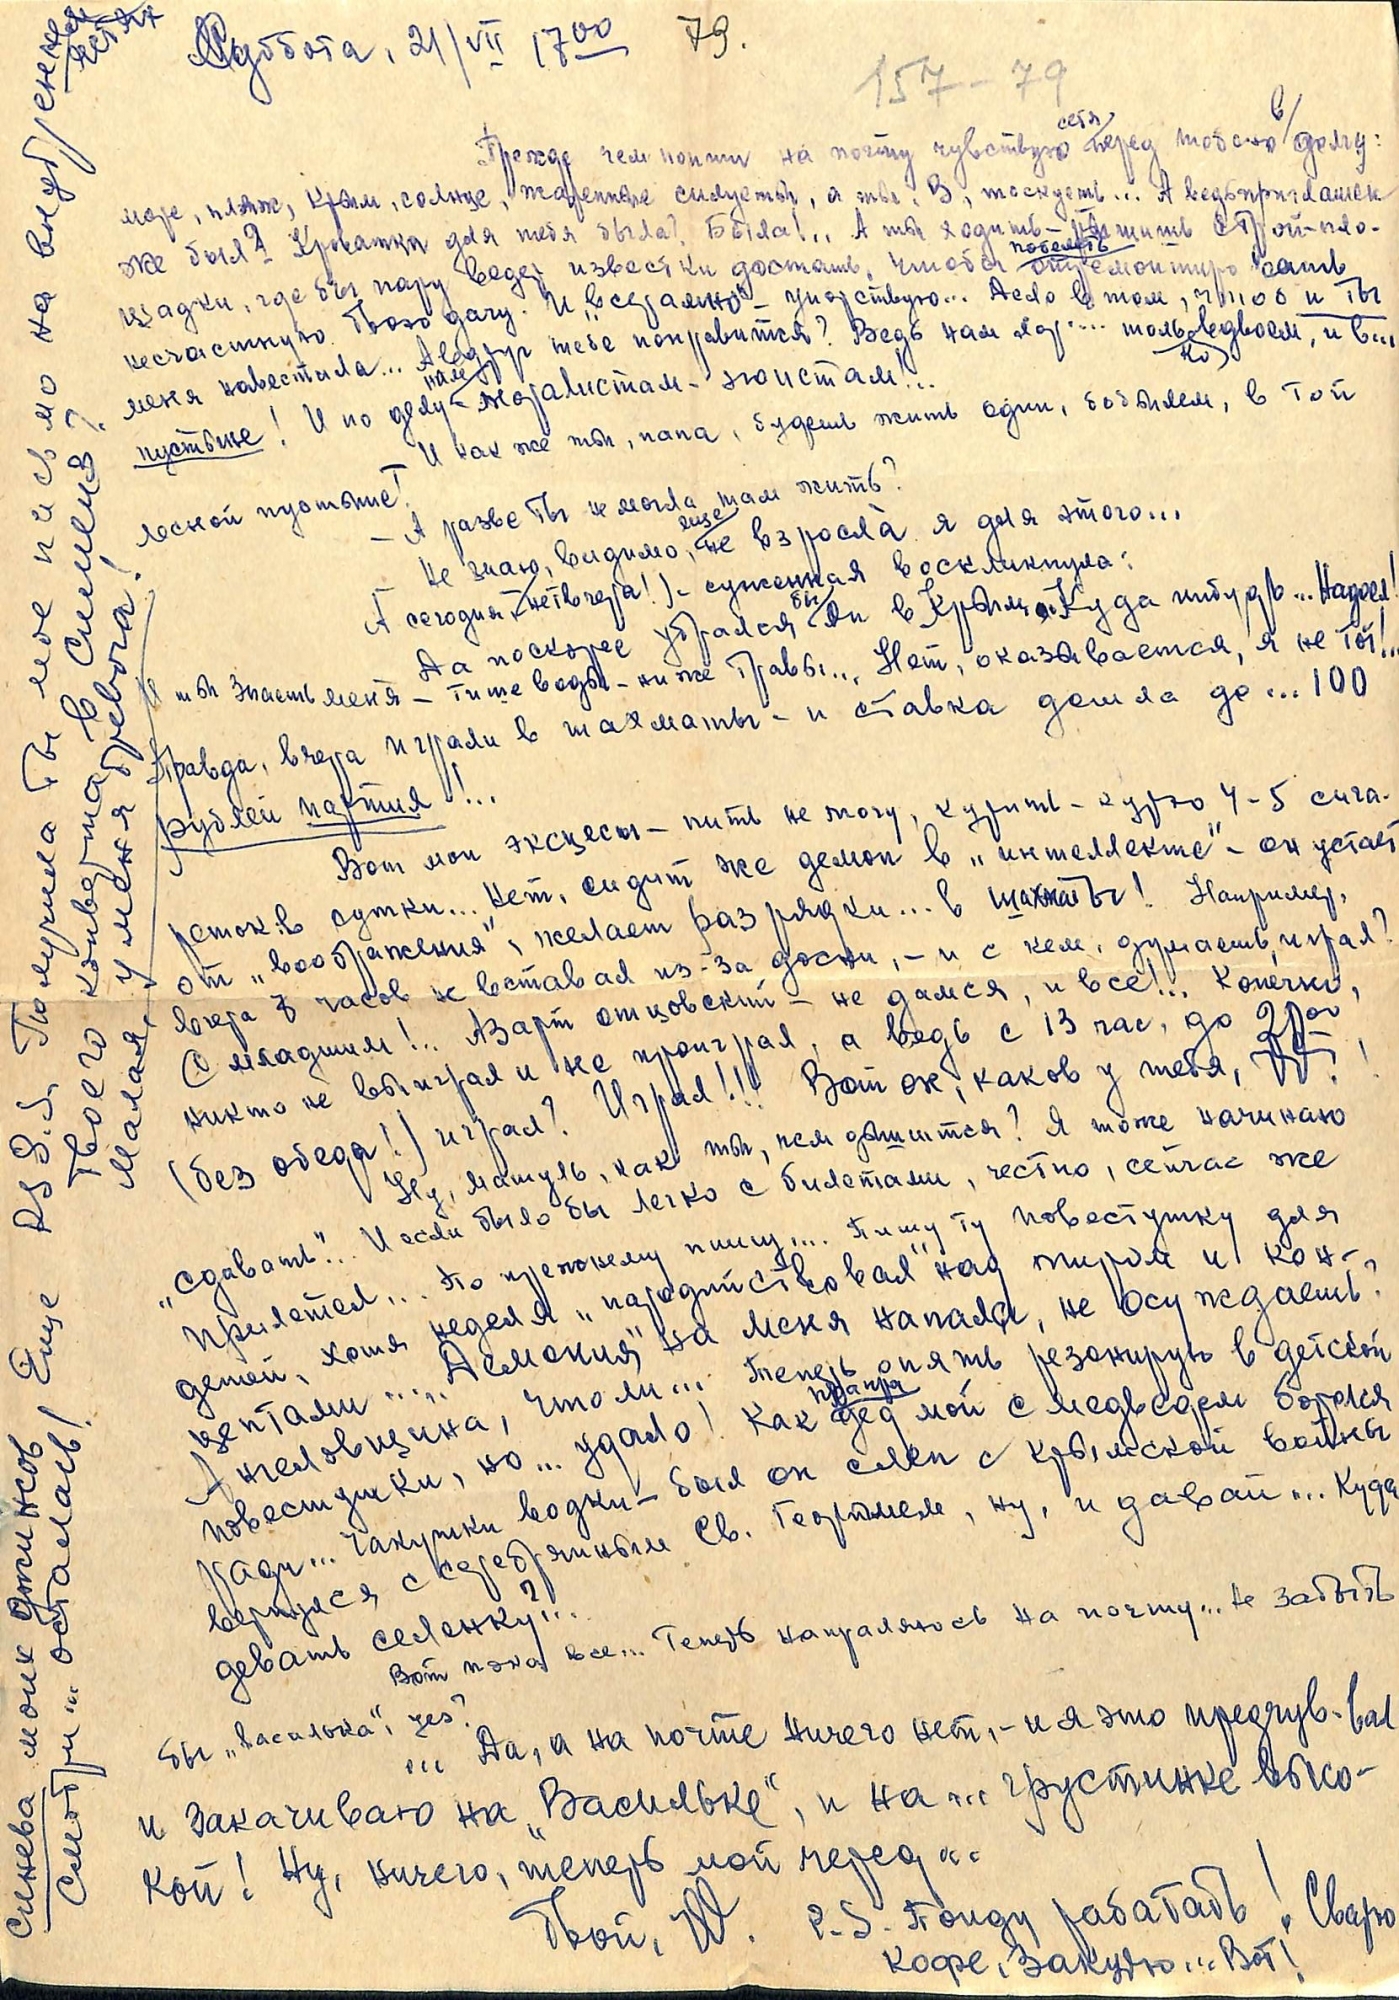 Суббота, 21/VII 17⁰⁰ 79.
157-79
Прежде чем пойти на почту чувствую себя перед тобою в долгу:
море, пляж, Крым, солнце, жареные силуэты, а ты, В, тоскуешь... А ведь приглашен
же был? Кроватка для тебя была? Была!.. А ты ходишь- ищишь стройпло-
щадки, где бы пару ведер известки достать, чтобы побелить отремонтировать
несчастную твою дачу. И „все равно" - упорствую... Дело в том, чтоб и ты
меня навестила... А вдруг тебе понравится? Ведь нам только вдвоем, и в...
пустыне! И по делу нам - моралистам - эгоистам!...
И как же ты, папа, будешь жить один, бобылем, в той
лесной пустыне?
- А разве ты не могла там жить?
Не знаю, видимо, еще не взросла я для этого...
А сегодня, (нет вчера!) - суженная воскликнула:
Да поскорее убрался бы ты в Крым, Куда нибудь... Надоел!
И ты знаешь меня - тише воды - ниже травы... Нет, оказывается, я не тот!..
Правда, вчера играли в шахматы - и ставка дошла до... 100
рублей партия!...
Вот мои эксцессы - пить не могу, курить - курю 4-5 сига-
реток в сутки... Нет, сидит же демон в „интеллекте" - он устает
от „воображения", желает разрядки... в шахматы! Например,
вчера 8 часов не вставал из-за доски, - и с кем, думаешь, играл?
С младшим!.. Азарт отцовский - не дался, и все!... Конечно,
никто не выиграл и не проиграл, а ведь с 13 час. до 21⁰⁰
(без обеда!) играл? Играл!!! Вот он, каков у тебя, W!
Ну, мамуль, как ты, чем дышится? Я тоже начинаю
„сдавать"... И если было бы легко с билетами, честно, сейчас же
прилетел... По прежнему пишу... Пишу ту повестушку для
детей, хотя неделя „пародийствовал" над миром и кон-
цептами... „Демония" на меня напала, не осуждаешь?
Ангеловщина, что ли... Теперь опять резонирую в детской
повестушки, но... удало! Как прапра дед мой с медведем боролся
ради... чакушки водки - был он слеп с крымской войны
вернулся с серебряным Св. Георгием, ну, и давай... Куда
девать силенку?...
Вот пока все... Теперь направляюсь на почту... Не забыть
бы „Василька", yes?
... Да, а на почте ничего нет, - и я это предчув-вал
и закачиваю на „Васильке", и на... грустинке высо-
кой! Ну, ничего, теперь мой черед...
Твой, W. P.S. Пойду работать! Сварю
кофе, Закурю... Вот!
Еще P.S З.Ы. Получила ты мое письмо на внутренней
твоего конверта в Симеиз?
Малая, у меня тревога!
Синева моих джинсов
Смотри... осталась!